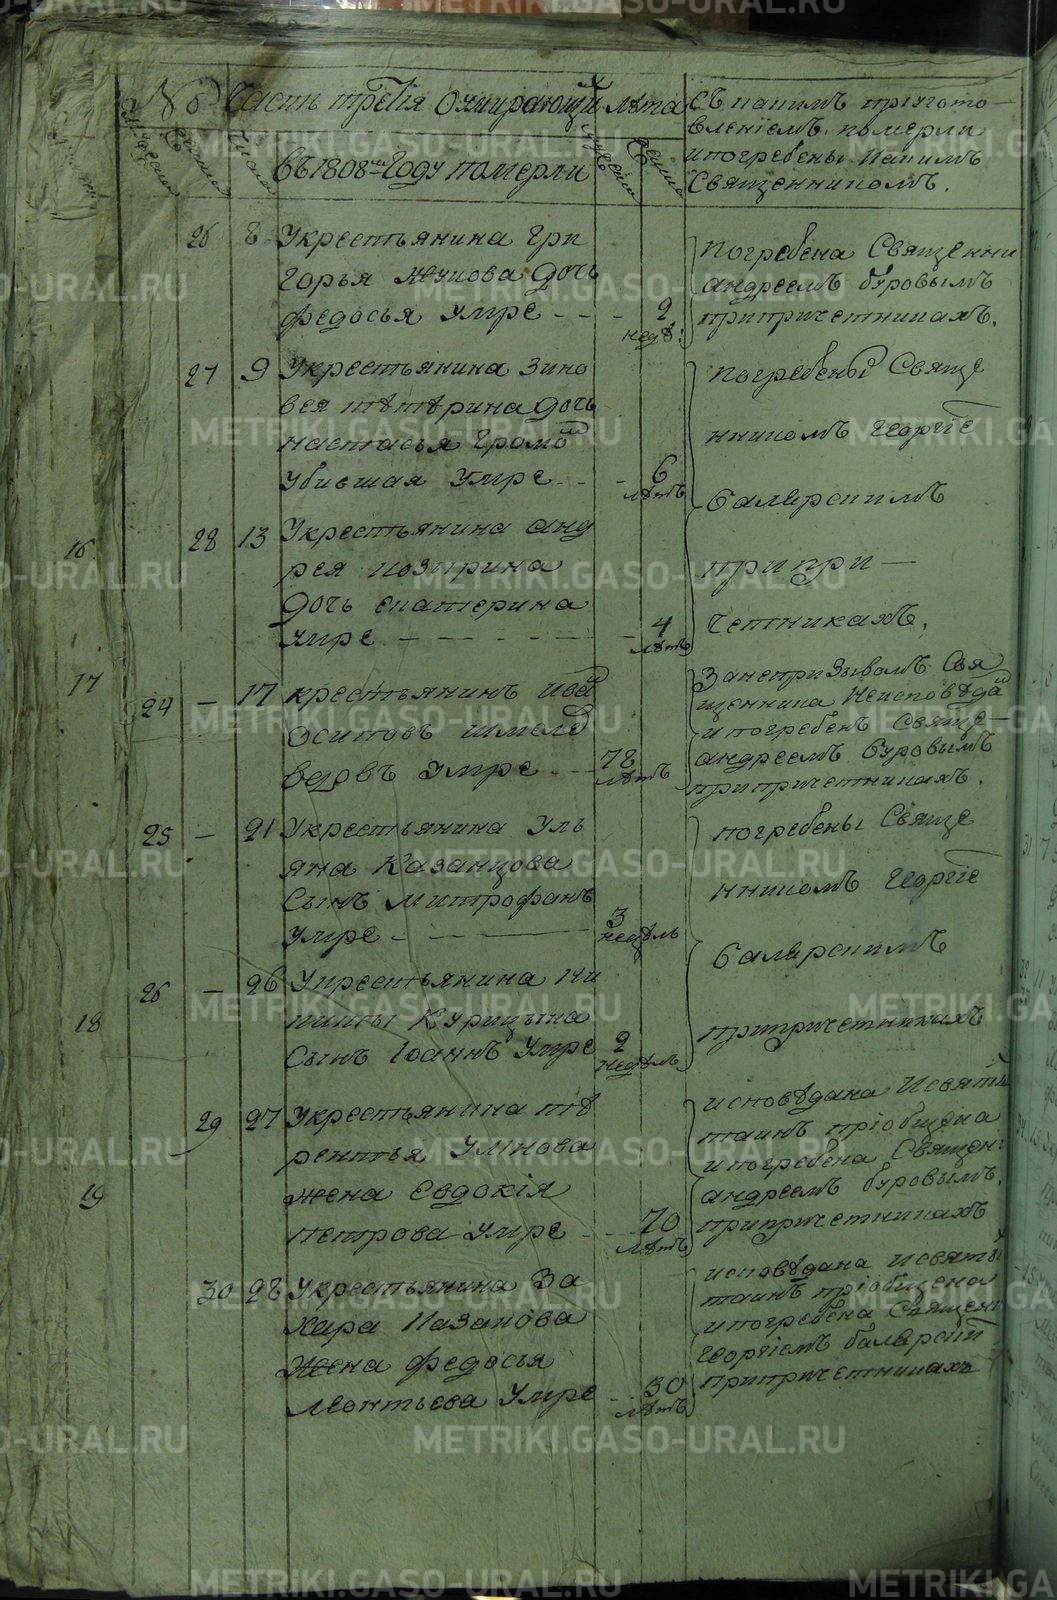 METRIKI.GASO-URAL.RU
№
Часть третїя О умирающихъ
Лѣта
Съ какимъ пріугото
вленїемъ померли
и погребены и какимъ
Священникомъ.
Мужеска
Женска
Числа
въ 1808мъ Году померли
мужеска
женска
26 8 У крестьянина Гри
горья дочь
федосья умре - - - 2
недѣ:
Погребена Священни
андреемъ буровымъ
при причетникахъ.
27 9 У крестьянина Зино
вея тѣтѣрина дочь
настасья Громом
убившая умре - - 6
лѣтъ
погребены Свяще
нникомъ Георгїе
балярскимъ
при при —
четникахъ.
16
28 13 У крестьянина анд
рея козырина
дочь екатерина
умре - - - - - - 4
лѣтъ
17
24 — 17 крестьянинъ Иван
Осиповъ шмелев
вдовъ умре - - 78
лѣтъ
За непризывомъ Свя
щенника неисповѣдан
и погребенъ Свяще—
андреемъ буровымъ
при причетникахъ.
25 — 21 У крестьянина Уль
яна Казанцова
Сынъ митрофанъ
умре - — — 3
недѣль
погребены Свяще
нникомъ Георгїе
балярскимъ
при причетникахъ
18
26 — 26 У крестьянина Ни
киты Курицына
Сынъ Іоаннъ умре 2
недѣль
29 27 У крестьянина те
рентья Умнова
жена Евдокїя
петрова умре - - 70
лѣтъ
исповѣдана и святы
таинъ пріобщена
и погребена Священ:
андреемъ буровымъ.
при причетникахъ
19
30 28 У крестьянина За
хара Казакова
жена федосья
Леонтьева умре - 30
лѣтъ
исповѣдана и святы
таинъ пріобщена
и погребена Священ
Георгїемъ балярски
при причетникахъ